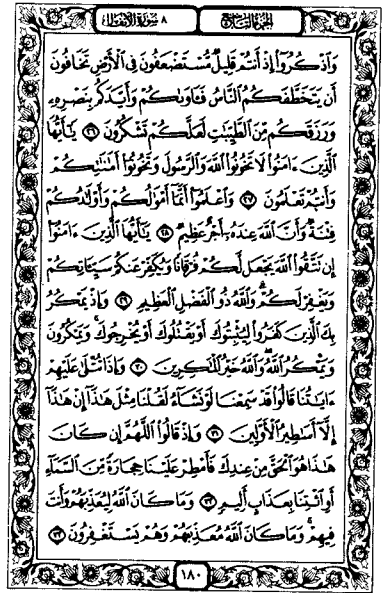 الجزء التاسع ٨ سورة الأنفال
وَاذْكُرُوا إِذْ أَنتُمْ قَلِيلٌ مُّسْتَضْعَفُونَ فِي الْأَرْضِ تَخَافُونَ
أَن يَتَخَطَّفَكُمُ النَّاسُ فَآوَاكُمْ وَأَيَّدَكُم بِنَصْرِهِ
وَرَزَقَكُم مِّنَ الطَّيِّبَاتِ لَعَلَّكُمْ تَشْكُرُونَ ٢٦ يَا أَيُّهَا
الَّذِينَ آمَنُوا لَا تَخُونُوا اللَّهَ وَالرَّسُولَ وَتَخُونُوا أَمَانَاتِكُمْ
وَأَنتُمْ تَعْلَمُونَ ٢٧ وَاعْلَمُوا أَنَّمَا أَمْوَالُكُمْ وَأَوْلَادُكُمْ
فِتْنَةٌ وَأَنَّ اللَّهَ عِندَهُ أَجْرٌ عَظِيمٌ ٢٨ يَا أَيُّهَا الَّذِينَ آمَنُوا
إِن تَتَّقُوا اللَّهَ يَجْعَل لَّكُمْ فُرْقَانًا وَيُكَفِّرْ عَنكُمْ سَيِّئَاتِكُمْ
وَيَغْفِرْ لَكُمْ وَاللَّهُ ذُو الْفَضْلِ الْعَظِيمِ ٢٩ وَإِذْ يَمْكُرُ
بِكَ الَّذِينَ كَفَرُوا لِيُثْبِتُوكَ أَوْ يَقْتُلُوكَ أَوْ يُخْرِجُوكَ وَيَمْكُرُونَ
وَيَمْكُرُ اللَّهُ وَاللَّهُ خَيْرُ الْمَاكِرِينَ ٣٠ وَإِذَا تُتْلَىٰ عَلَيْهِمْ
آيَاتُنَا قَالُوا قَدْ سَمِعْنَا لَوْ نَشَاءُ لَقُلْنَا مِثْلَ هَٰذَا إِنْ هَٰذَا
إِلَّا أَسَاطِيرُ الْأَوَّلِينَ ٣١ وَإِذْ قَالُوا اللَّهُمَّ إِن كَانَ
هَٰذَا هُوَ الْحَقَّ مِنْ عِندِكَ فَأَمْطِرْ عَلَيْنَا حِجَارَةً مِّنَ السَّمَاءِ
أَوِ ائْتِنَا بِعَذَابٍ أَلِيمٍ ٣٢ وَمَا كَانَ اللَّهُ لِيُعَذِّبَهُمْ وَأَنتَ
فِيهِمْ وَمَا كَانَ اللَّهُ مُعَذِّبَهُمْ وَهُمْ يَسْتَغْفِرُونَ ٣٣
١٨٠